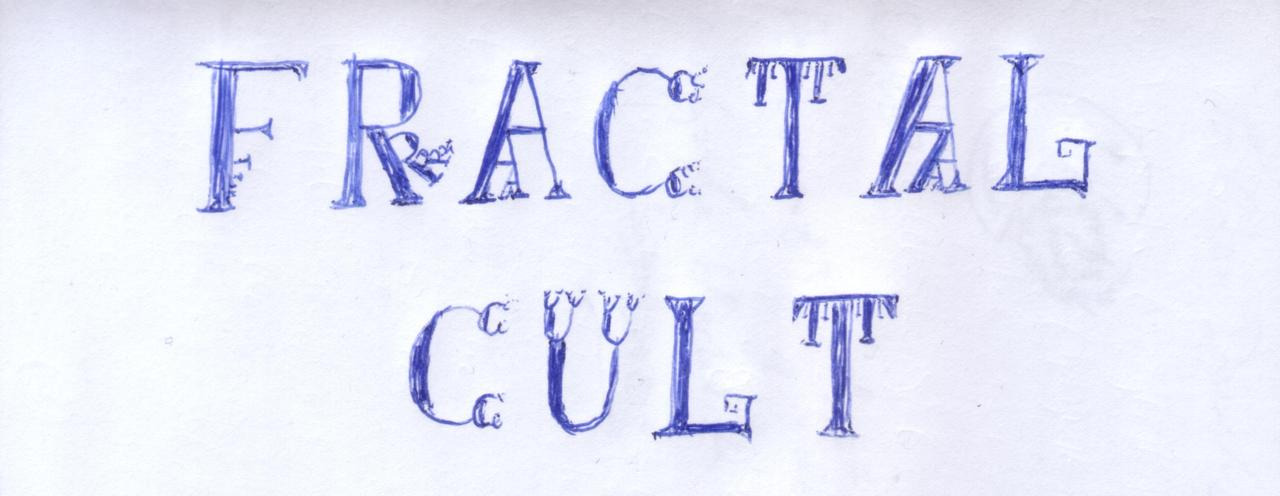 FRACTAL
CULT